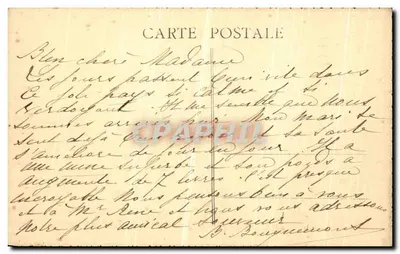 CARTE POSTALE
Bien chère Madame
Les jours passent si vite dans
ce joli pays si calme et si
verdoyant. Il me semble que nous
sommes arrivés Mon mari se
sent déjà et sa santé
s'améliore de jour en jour. Il a
une mine superbe et son poids a
augmenté de 7 livres. C'est presque
incroyable Nous pensons bien à vous
et à Mr René et nous vous adressons
notre plus amical souvenir
B.